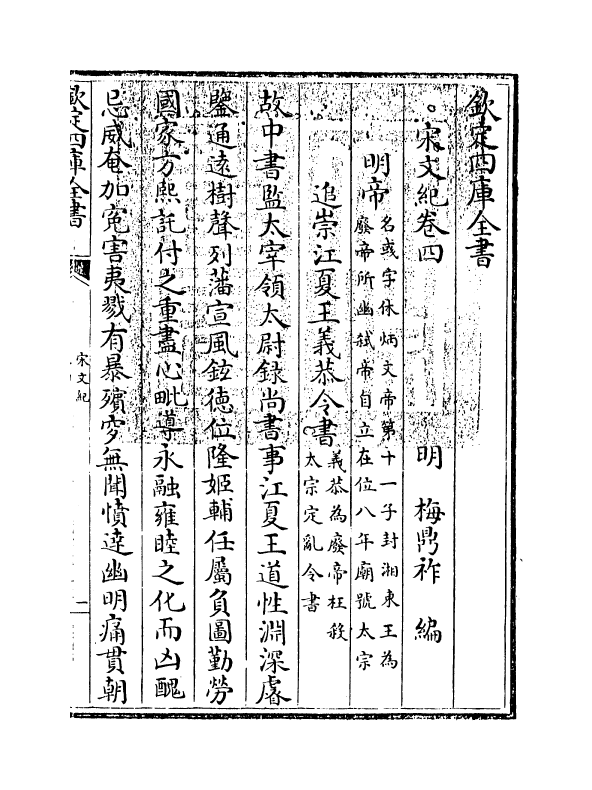 欽定四庫全書
宋文紀卷四
明 梅鼎祚 編
明帝
名彧字休炳文帝第十一子封湘東王為
廢帝所幽弑帝自立在位八年廟號太宗
追崇江夏王義恭令書
義恭為廢帝枉殺
太宗定亂令書
故中書監太宰領太尉錄尚書事江夏王道性淵深睿
鑒通遠樹聲列藩宣風鉉德位隆姬輔任屬負圖勤勞
國家方熙託付之重盡心毗導永融雍睦之化而凶醜
忌威奄加寃害夷戮有暴殯穸無聞憤達幽明痛貫朝
欽定四庫全書
宋文紀